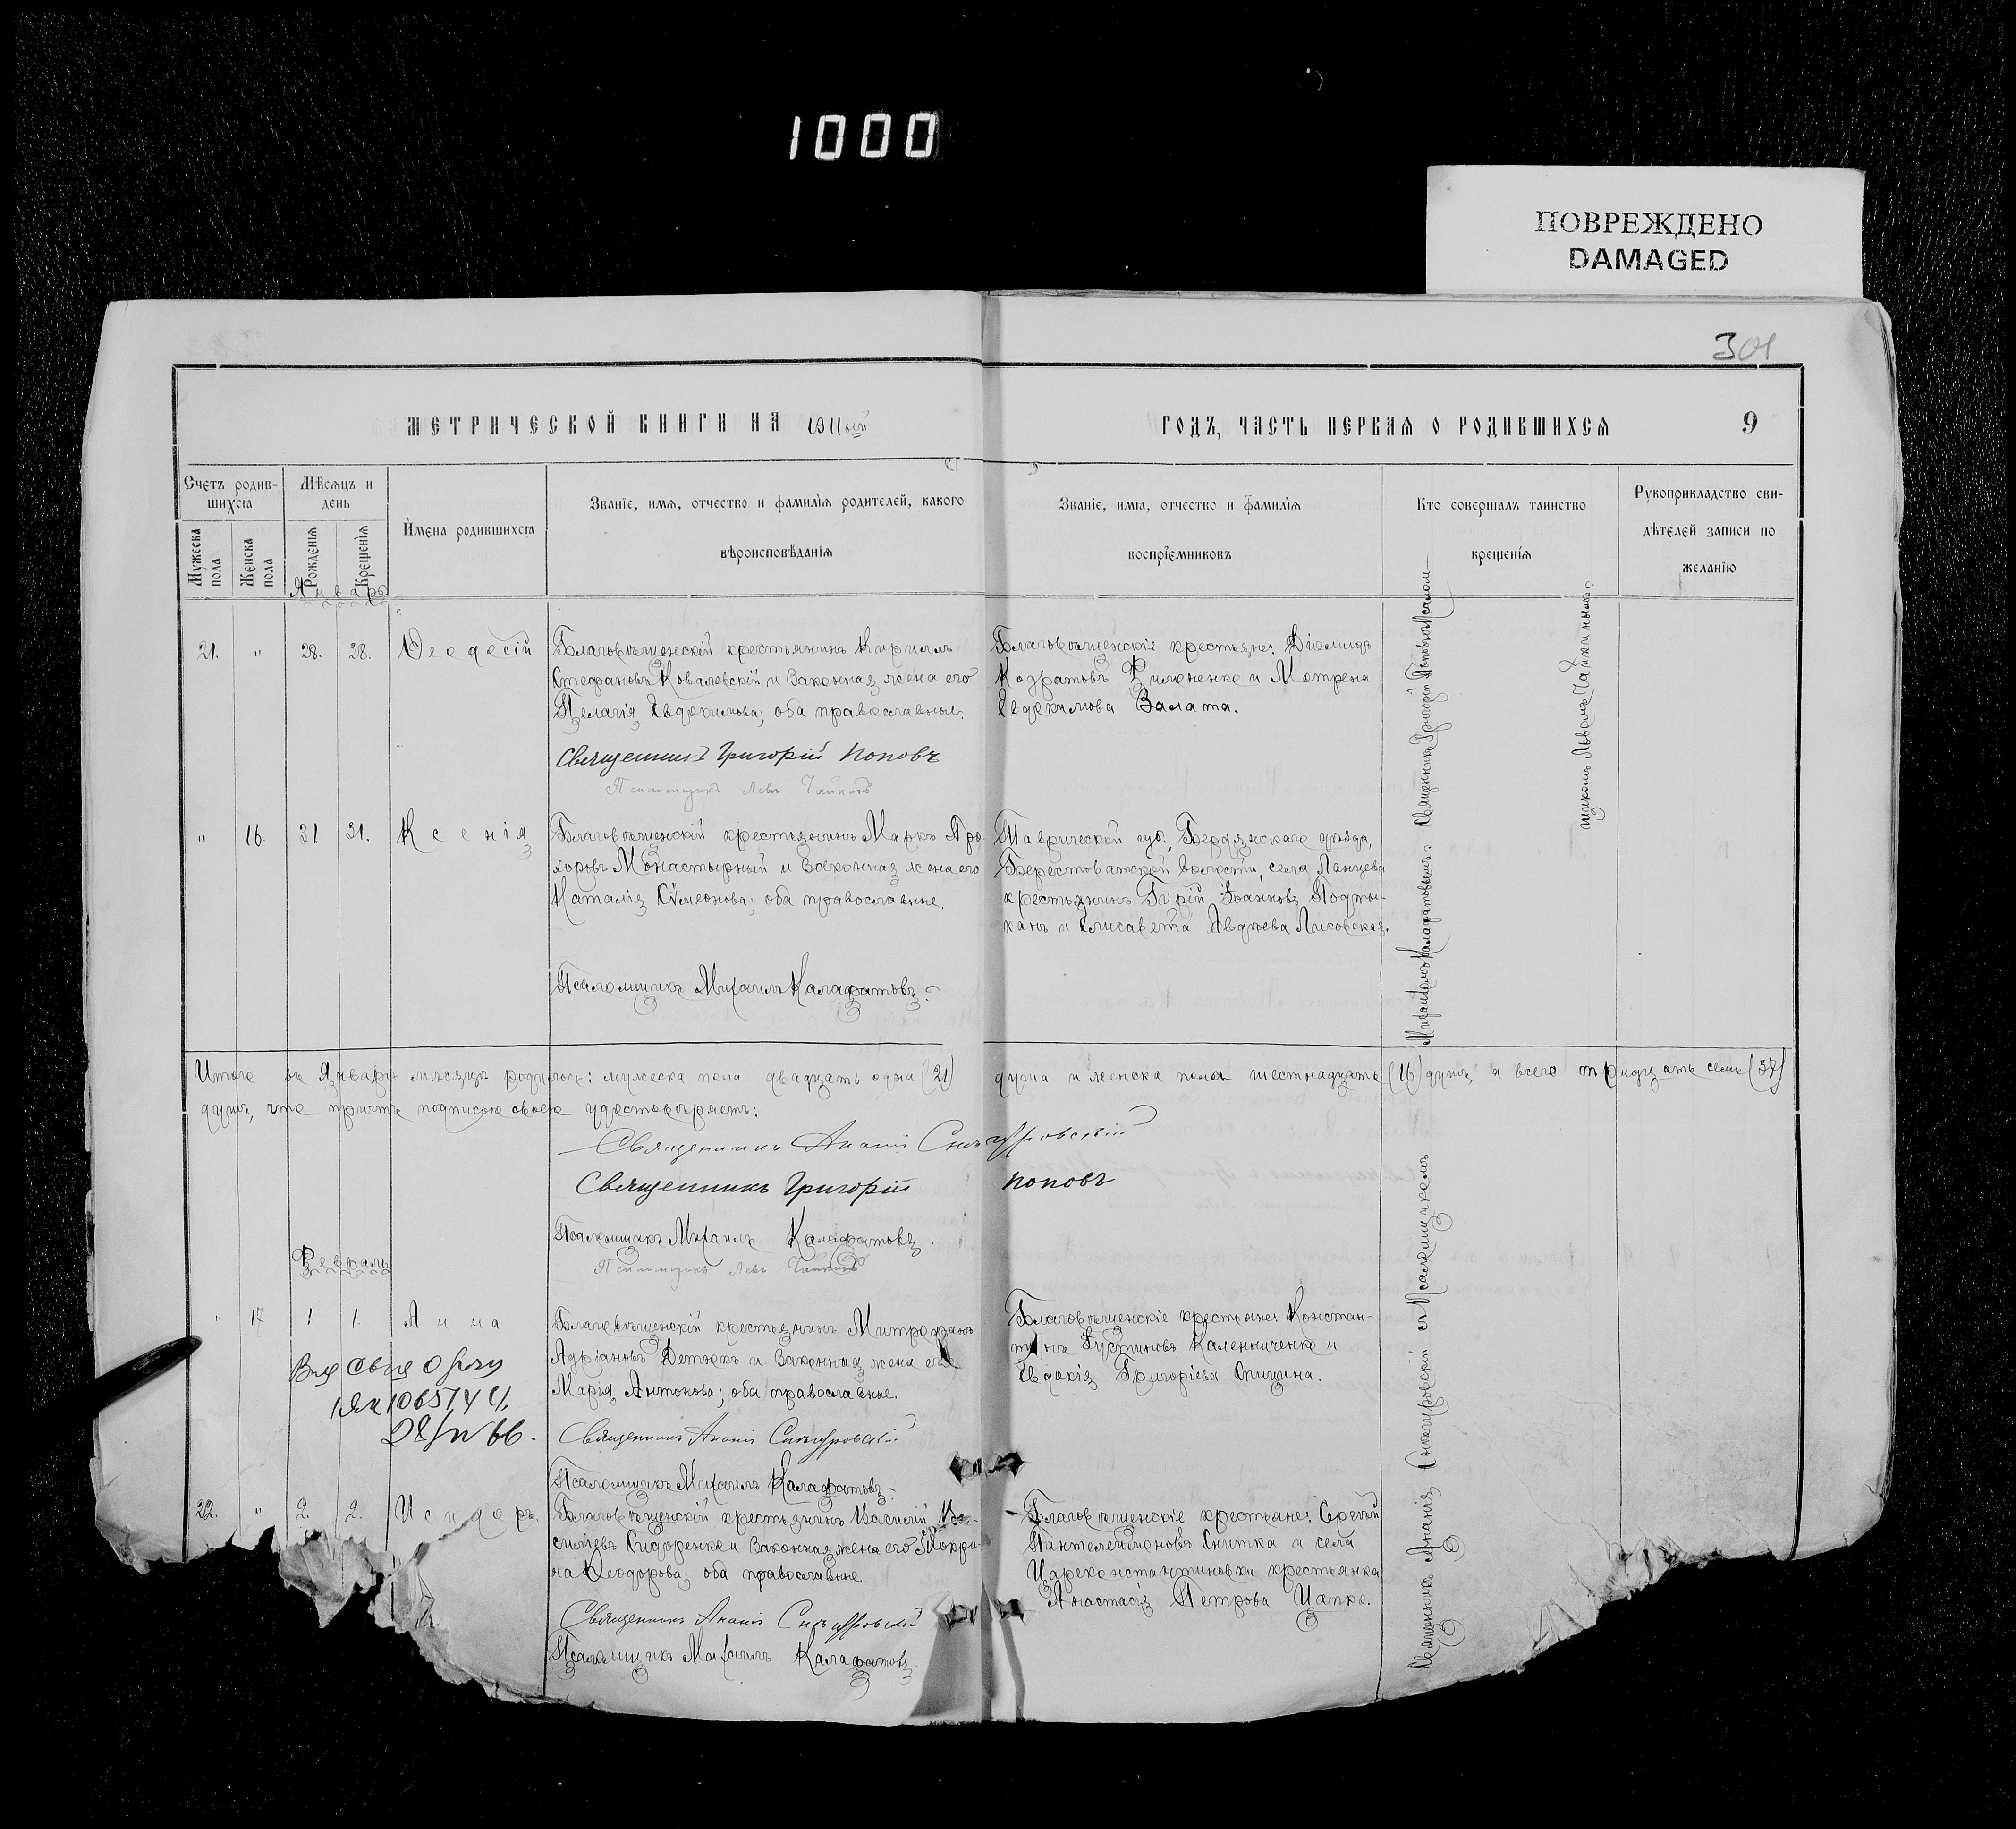 1000
ПОВРЕЖДЕНО
DAMAGED
301
МЕТРИЧЕСКОЙ КНИГИ НА 1911ый
ГОДЪ, ЧАСТЬ ПЕРВАЯ О РОДИВШИХСЯ
9
Счетъ родив-
шихся
Мѣсяцъ и
день
Мужеска
пола
Женска
пола
Рожденія
Крещенія
Имена родившихся
Званіе, имя, отчество и фамилія родителей, какого
вѣроисповѣданія
Званіе, имя, отчество и фамилія
воспріемниковъ
Кто совершалъ таинство
крещенія
Рукоприкладство сви-
дѣтелей записи по
желанію
Январь
21. " 28. 28. Ѳеодосій
Благовѣщенскій крестьянинъ Кириллъ
Стефановъ Ковалевскій и законная жена его
Пелагія Евдокимова; оба православные.
Священникъ Григорій Поповъ
Псаломщикъ Левъ Чайкинъ
Благовѣщенскіе крестьяне: Діомидъ
Кодратовъ Филоненко и Матрена
Евдокимова Залата.
Священникъ Григорій Поповъ съ Псалом-
щикомъ Львомъ Чайкинымъ.
" 16. 31 31. Ксенія
Благовѣщенскій крестьянинъ Марко Про-
хоровъ Монастырный и законная жена его
Наталія Сѵмеонова; оба православные.
Псаломщикъ Михаилъ Калафатовъ.
Таврической губ., Бердянскаго уѣзда,
Берестоватской волости, села Ланцева
крестьянинъ Гурій Іоанновъ Подты-
канъ и Елисавета Авдѣева Лисовская.
Михаиломъ Калафатовымъ.
Итого въ Январѣ мѣсяцѣ родилось: мужеска пола двадцать одна (21) душа и женска пола шестнадцать (16) душъ, а всего тридцать семь (37)
душъ, что причтъ подписью своею удостовѣряетъ:
Священникъ Ананій Снѣгуровскій
Священникъ Григорій Поповъ
Псаломщикъ Михаилъ Калафатовъ.
Псаломщикъ Левъ Чайкинъ
Февраль
" 17 1 1. Анна
Благовѣщенскій крестьянинъ Митрофанъ
Адріановъ Детюкъ и законная жена его
Марія Антонова; оба православные.
Священникъ Ананій Снѣгуровскій
Псаломщикъ Михаилъ Калафатовъ.
Благовѣщенскіе крестьяне: Констан-
тинъ Іустиновъ Калениченко и
Евдокія Григоріева Спицина.
22. " 2. 2. Исидоръ
Благовѣщенскій крестьянинъ Василій Ва-
силіевъ Сидоренко и законная жена его Мокри-
на Ѳеодорова; оба православные.
Священникъ Ананій Снѣгуровскій
Псаломщикъ Михаилъ Калафатовъ
Благовѣщенскіе крестьяне: Сергѣй
Пантелеимоновъ Снитка и села
Цареконстантиновки крестьянка
Анастасія Петрова Цапко.
Священникъ Ананія Снѣгуровскій съ Псаломщикомъ